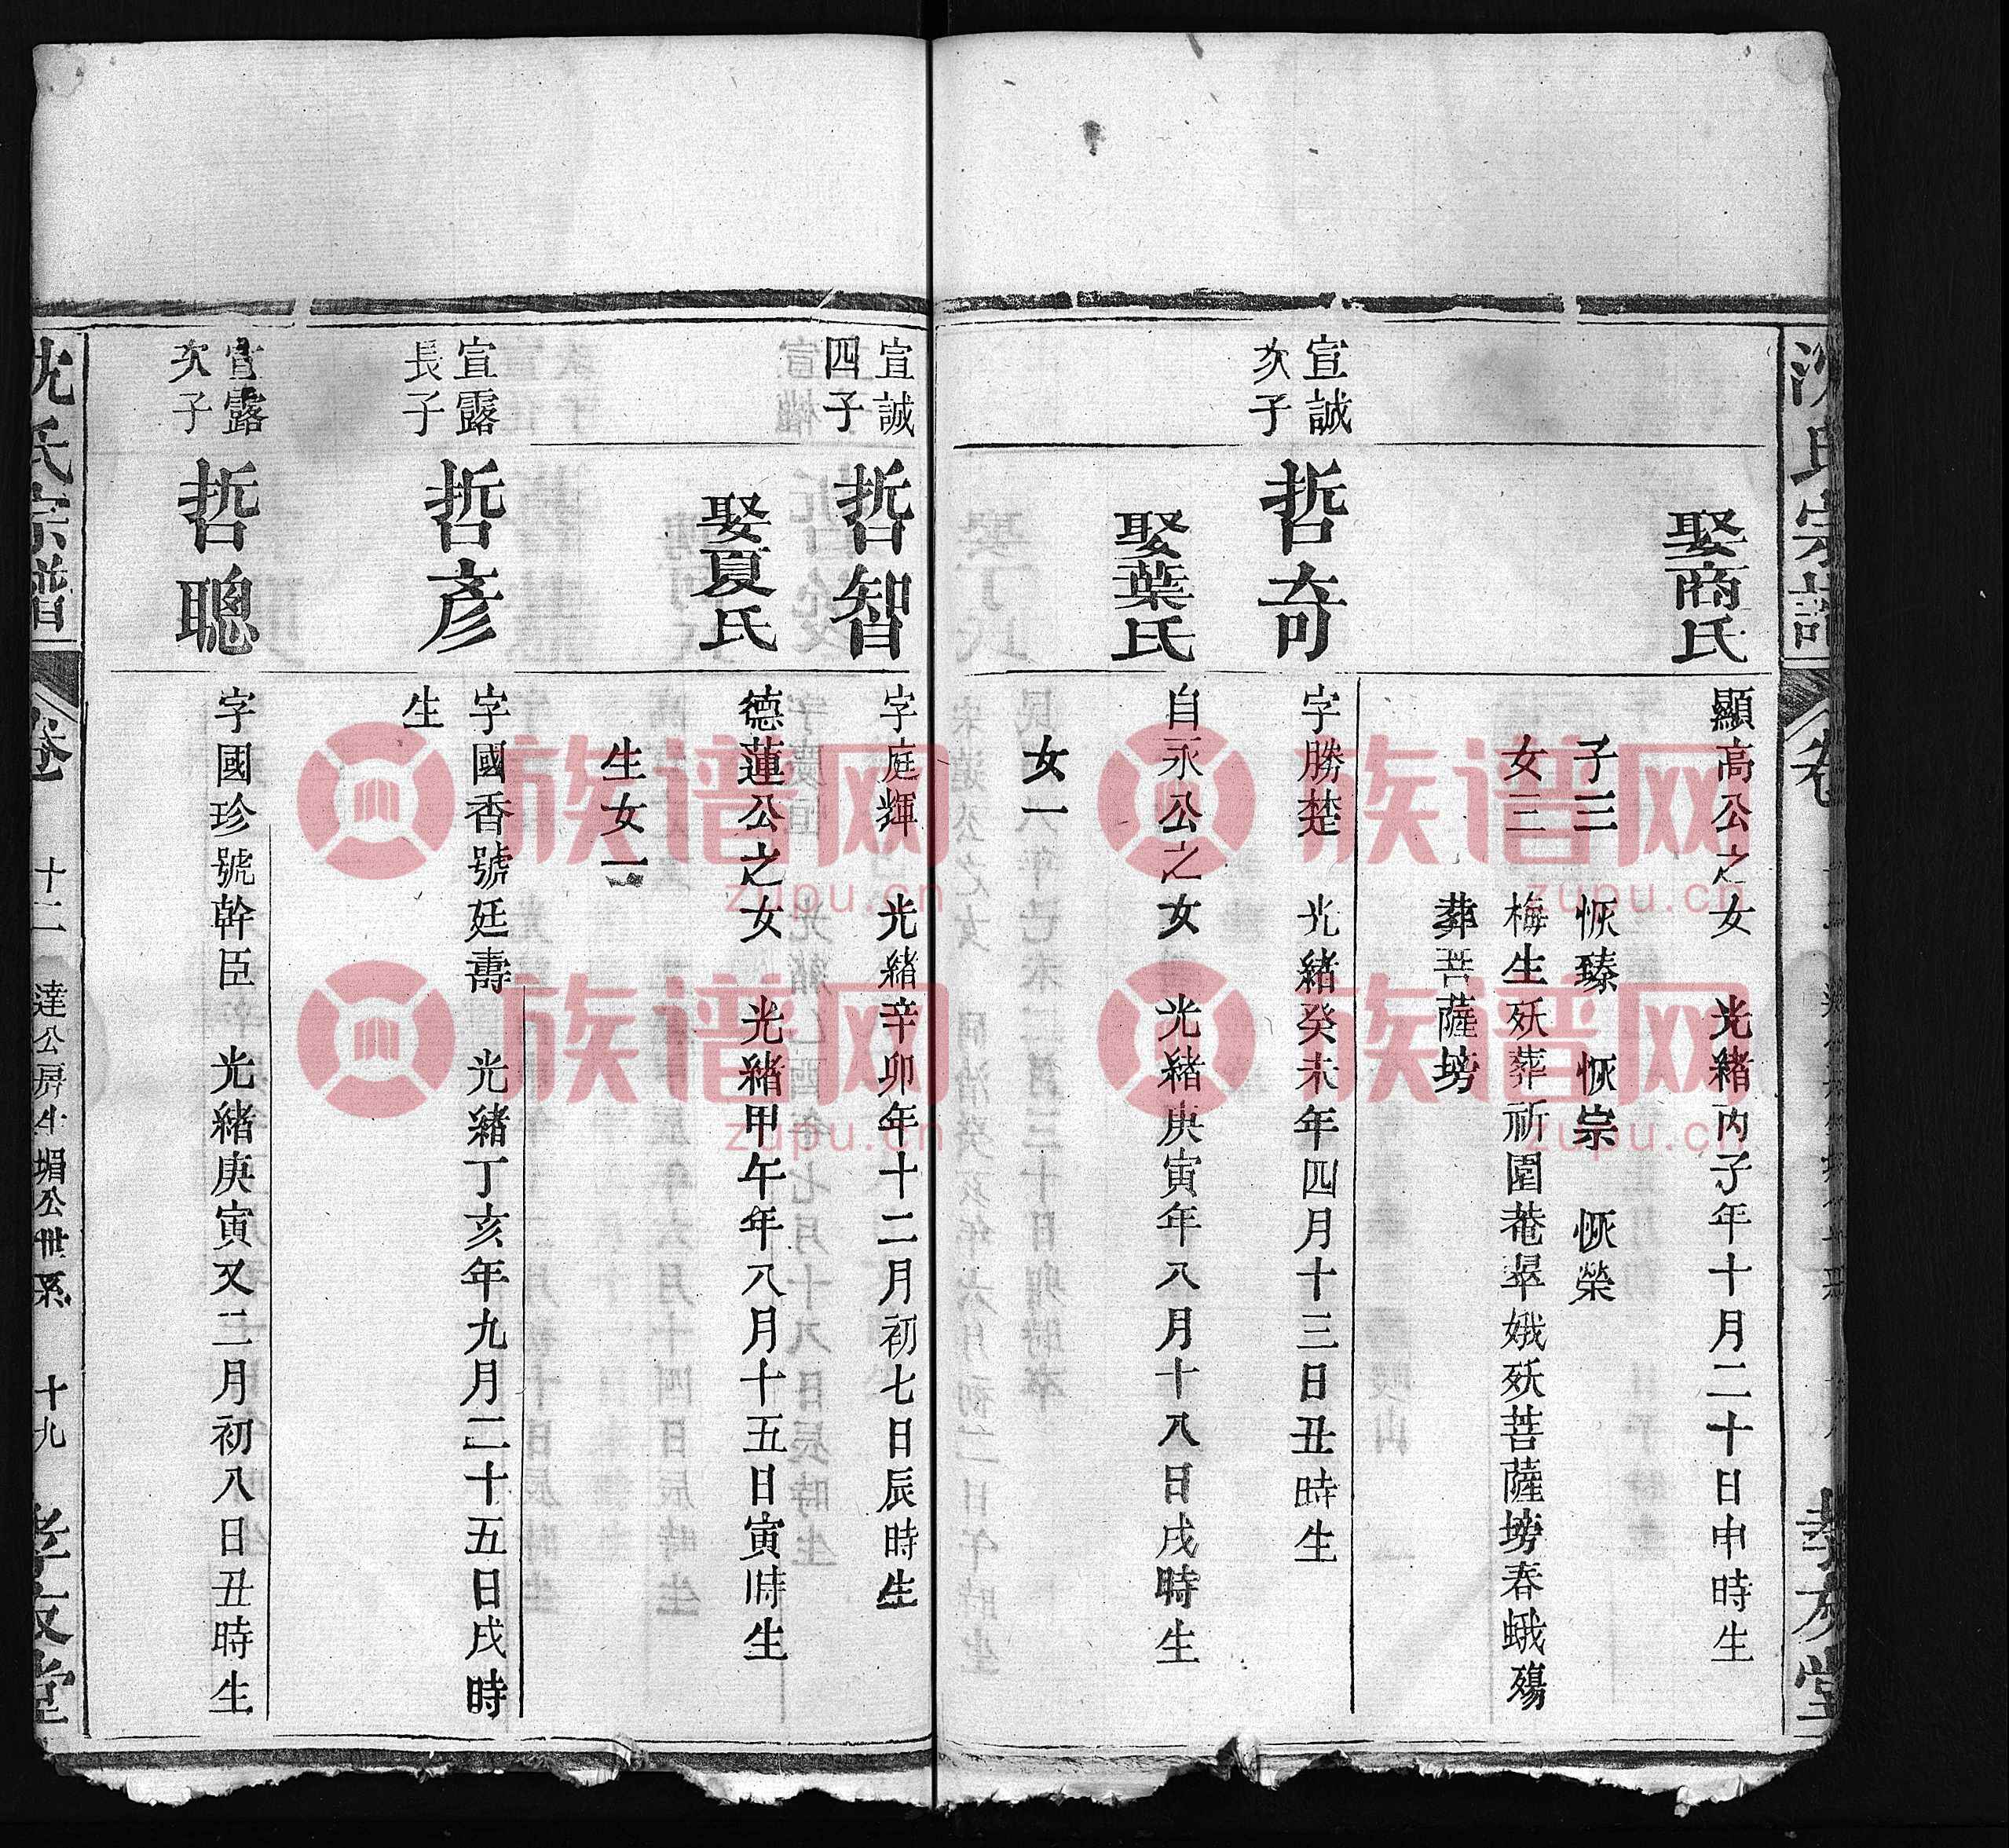 沈氏宗譜
卷
孝友堂
娶商氏
顯高公之女 光緒丙子年十月二十日申時生
子三 恢臻 恢崇 恢榮
女二 梅生殀葬祈園菴翠娥殀菩薩塝春蛾殤
葬菩薩塝
宣誠
次子
哲奇
字勝楚 光緒癸未年四月十三日丑時生
娶葉氏
自永公之女 光緒庚寅年八月十八日戌時生
女一
宣誠
四子
哲智
字庭輝 光緒辛卯年十二月初七日辰時生
娶夏氏
德蓮公之女 光緒甲午年八月十五日寅時生
生女一
宣露
長子
哲彥
字國香號廷壽 光緒丁亥年九月二十五日戌時
生
宣露
次子
哲聰
字國珍號幹臣 光緒庚寅又二月初八日丑時生
沈氏宗譜
卷 十二 達公房牛堨公世系 十九
孝友堂
族谱网
zupu.cn
族谱网
zupu.cn
族谱网
zupu.cn
族谱网
zupu.cn